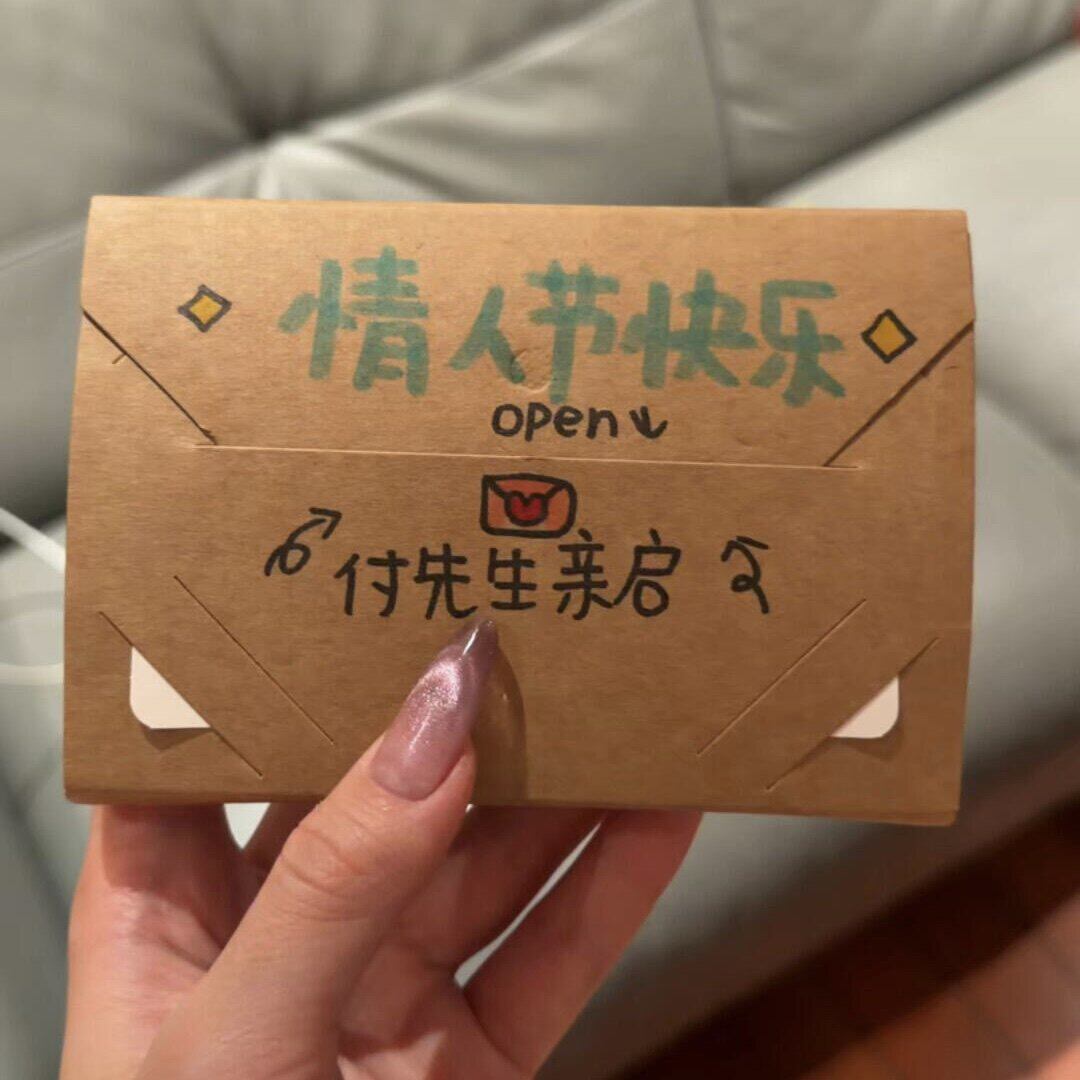 情人节快乐
open
付先生亲启